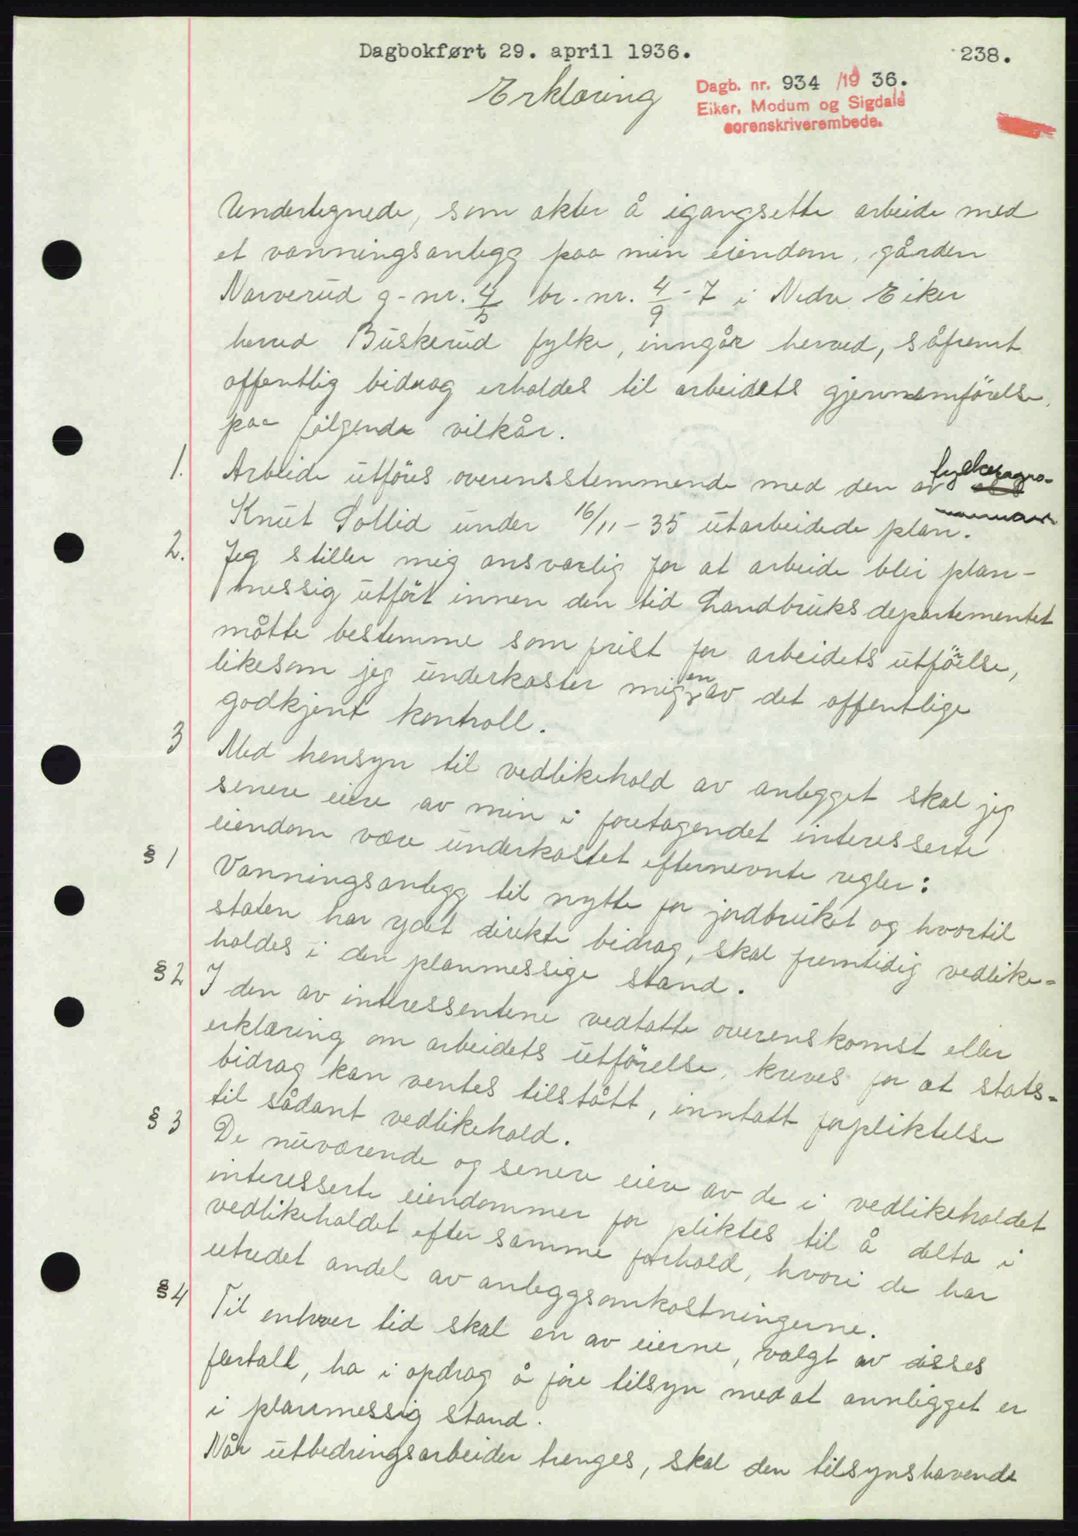 Dagbokført 29. april 1936.
238.
Erklæring
Dagb. nr. 934 /19 36.
Eiker, Modum og Sigdals
sorenskriverembede.
Undertegnede, som akter å igangsette arbeide med
et vanningsanlegg paa min eiendom, gården
Narverud g-nr. 4/5 br.-nr. 4/9 - 7 i Nedre Eiker
herred Buskerud fylke, inngår herved, såfremt
offentlig bidrag erholdes til arbeidets gjennemförelse,
paa fölgende vilkår.
1. Arbeide utföres overensstemmende med den av fylkesagro-
Knut Sollid under 16/11-35 utarbeidede plan.
2. Jeg stiller mig ansvarlig for at arbeide blir plan-
messig utfört innen den tid Landbruksdepartementet
måtte bestemme som frist for arbeidets utförelse,
likesom jeg underkaster mig en av det offentlige
godkjent kontroll.
3 Med hensyn til vedlikehold av anlegget skal jeg
senere eiere av min i foretagendet interesserte
eiendom være underkastet efternevnte regler:
§ 1 Vanningsanlegg til nytte for jordbruket og hvortil
staten har ydet direkte bidrag, skal fremtidig vedlike-
holdes i den planmessige stand.
§ 2 I den av interessentene vedtatte overenskomst eller
erklæring om arbeidets utförelse, kreves for at stats-
bidrag kan ventes tilstått, inntatt forpliktelse
til sådant vedlikehold.
§ 3 De nuværende og senere eiere av de i vedlikeholdet
interesserte eiendommer for pliktes til å delta i
vedlikeholdet efter samme forhold, hvori de har
utredet andel av anleggsomkostningerne.
§ 4 Til enhver tid skal en av eierne, valgt av disses
flertall, ha i opdrag å före tilsyn med at annligget er
i planmessig stand.
Når utbedringsarbeider trenges, skal den tilsynshavende